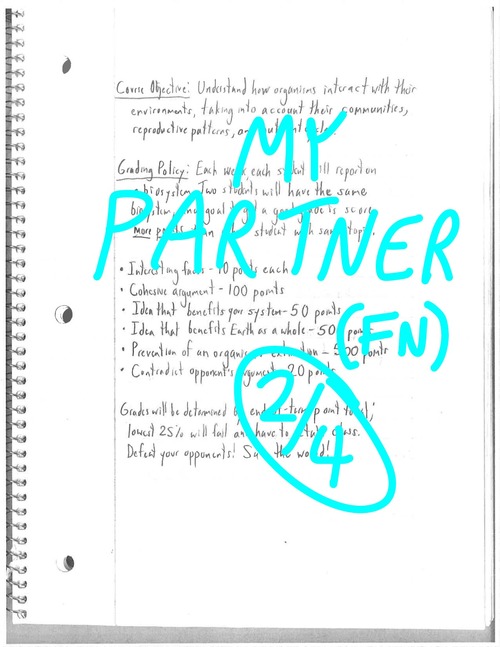 Course Objective: Understand how organisms interact with their
environments, taking into account their communities,
reproductive patterns, and
Grading Policy: Each week each student will report on
a biosystem. Two students will have the same
biosystem, goal to get a good grade is score
more points than the student with same topic.
• Interesting facts - 10 points each
• Cohesive argument - 100 points
• Idea that benefits your system - 50 points
• Idea that benefits Earth as a whole - 50 points
• Prevention of an organism's extinction - 500 points
• Contradict opponent's argument - 20 points
Grades will be determined by end-of-term point total;
lowest 25% will fail and have to retake class.
Defeat your opponents! Save the world!
MY
PARTNER
(EN)
2/4